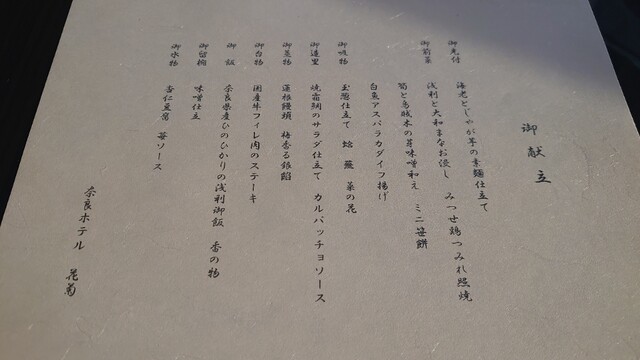 御献立
御先付 海老とじゃが芋の素麺仕立て
御前菜 浅利と大和まなお浸し みつせ鶏つみれ照焼
筍と烏賊木の芽味噌和え ミニ笹餅
白魚アスパラカダイフ揚げ
御吸物 玉葱仕立て 蛤 蕪 菜の花
御造里 焼霜鯛のサラダ仕立て カルパッチョソース
御煮物 蓮根饅頭 梅香る銀餡
御台物 国産牛フィレ肉のステーキ
御飯 奈良県産ひのひかりの浅利御飯 香の物
御留椀 味噌仕立
御水物 杏仁豆腐 苺ソース
奈良ホテル 花菊